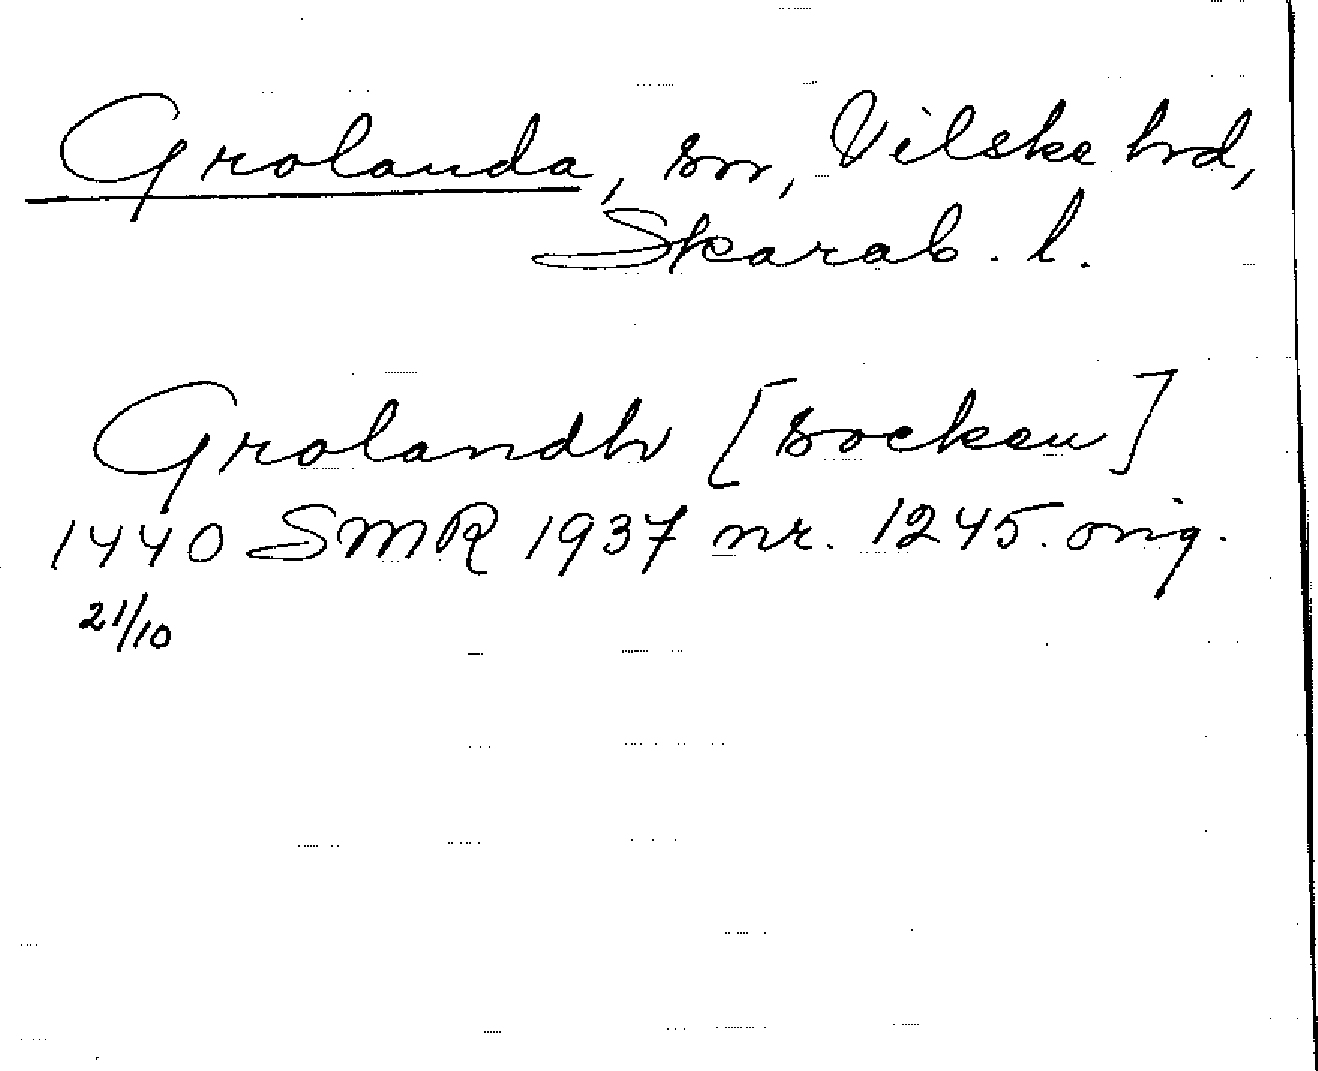 Grolanda, sn, Vilske hrd,
Skarab. l.
Grolandh [socken]
1440 SMR 1937 nr. 1245. orig.
21/10